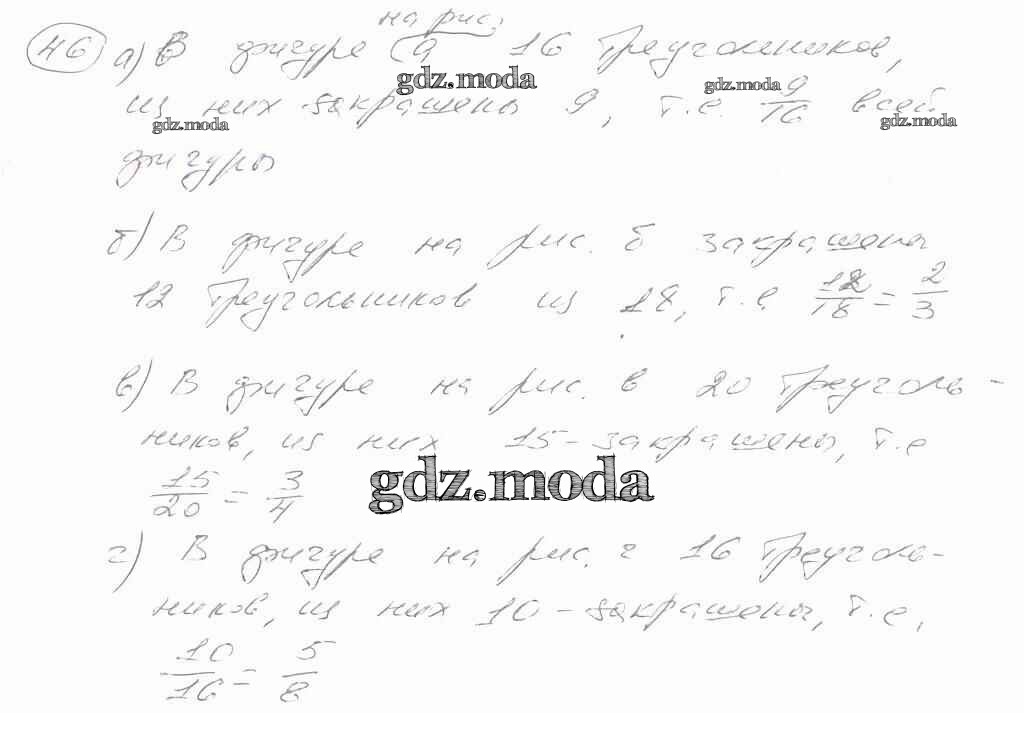 46 а) В фигуре на рис. а 16 треугольников,
gdz.moda
gdz.moda
из них закрашены 9, т.е. 9/16 всей
gdz.moda
gdz.moda
фигуры
б) В фигуре на рис. б закрашены
12 треугольников из 18, т.е 12/18 = 2/3
в) В фигуре на рис. в 20 треуголь-
ников, из них 15 - закрашены, т.е
15/20 = 3/4
gdz.moda
г) В фигуре на рис. г 16 треуголь-
ников, из них 10 - закрашены, т.е.
10/16 = 5/8